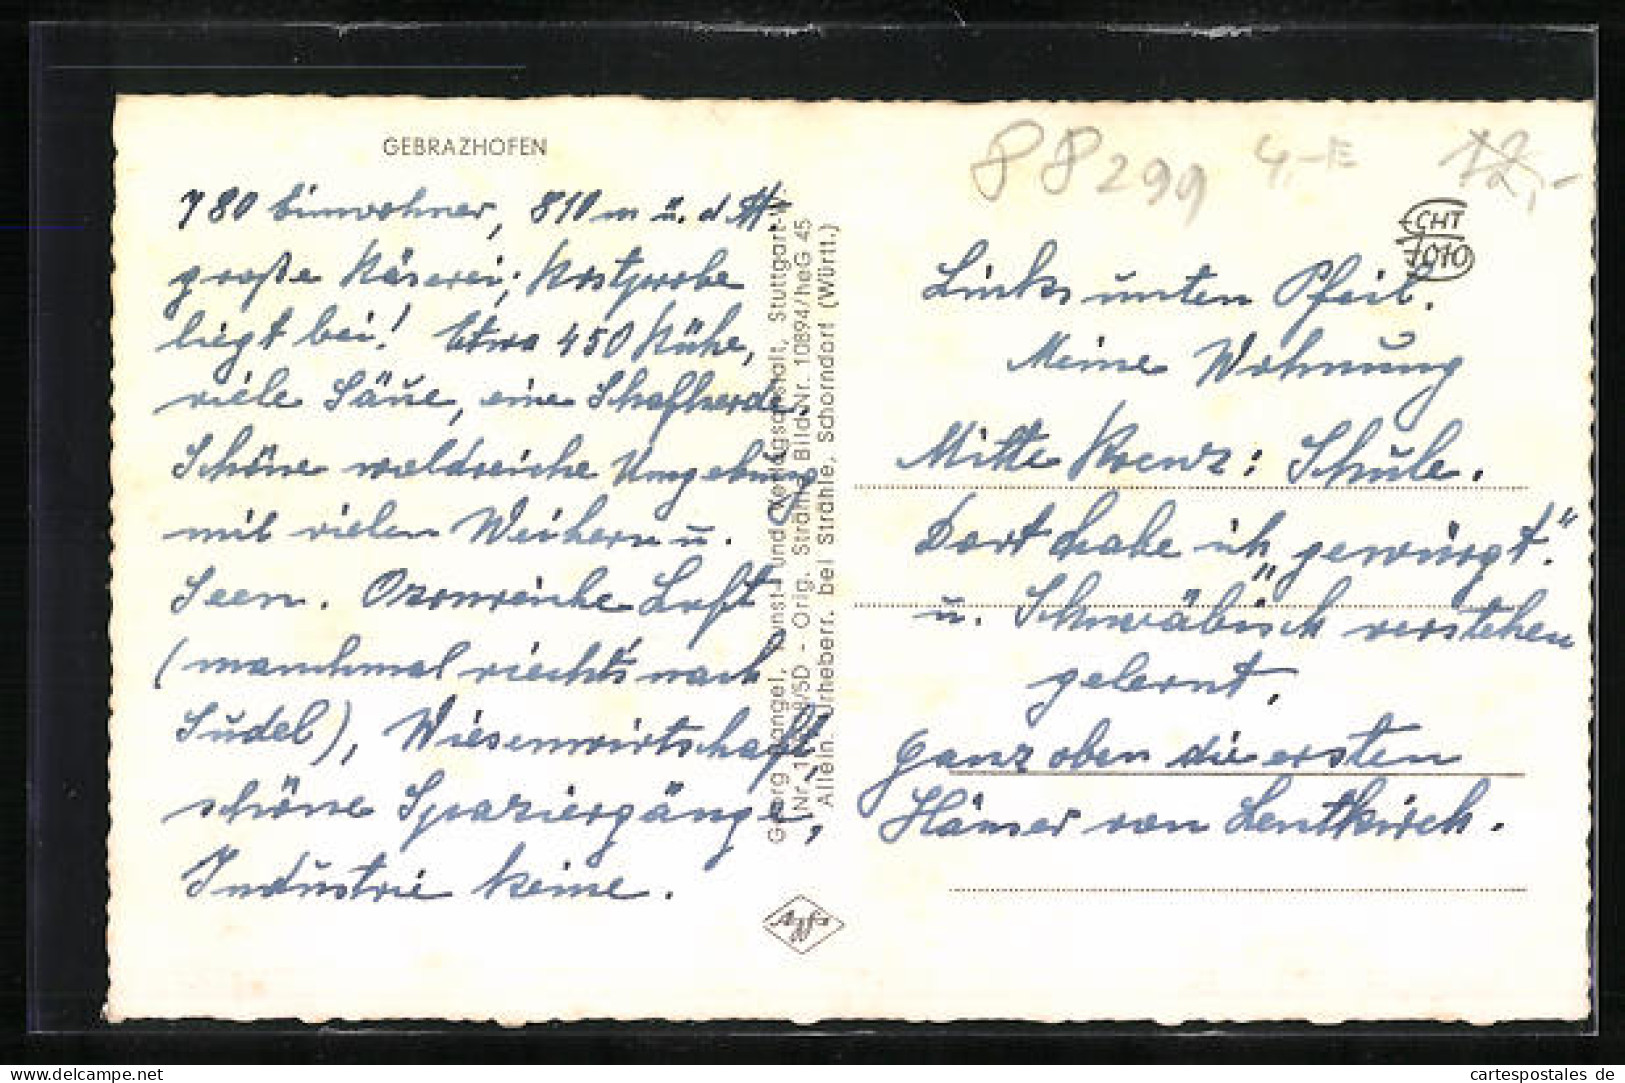 GEBRAZHOFEN
780 Einwohner, 810 m ü. d. M.
große Käserei, Kostprobe
liegt bei! Etwa 450 Kühe,
viele Säue, eine Schafherde.
Schöne waldreiche Umgebung
mit vielen Weihern u.
Seen. Ozonreiche Luft
(manchmal riecht's nach
Sudel), Wiesenwirtschaft,
schöne Spaziergänge,
Industrie keine.
Georg Zangel, Kunst- und Verlagsanstalt, Stuttgart-
/SD - Orig. Strähle Bild-Nr. 10894/heG 45
Allein. Urheberr. bei Strähle, Schorndorf (Württ.)
Agfa
88299 4,- 12,-
ECHT
1010
Links unten Pfeil.
Meine Wohnung
Mitte Kreuz: Schule.
Dort habe ich „gewürgt"
u. Schwäbisch verstehen
gelernt.
Ganz oben die ersten
Häuser von Leutkirch.
cartespostales.de
cartespostales de